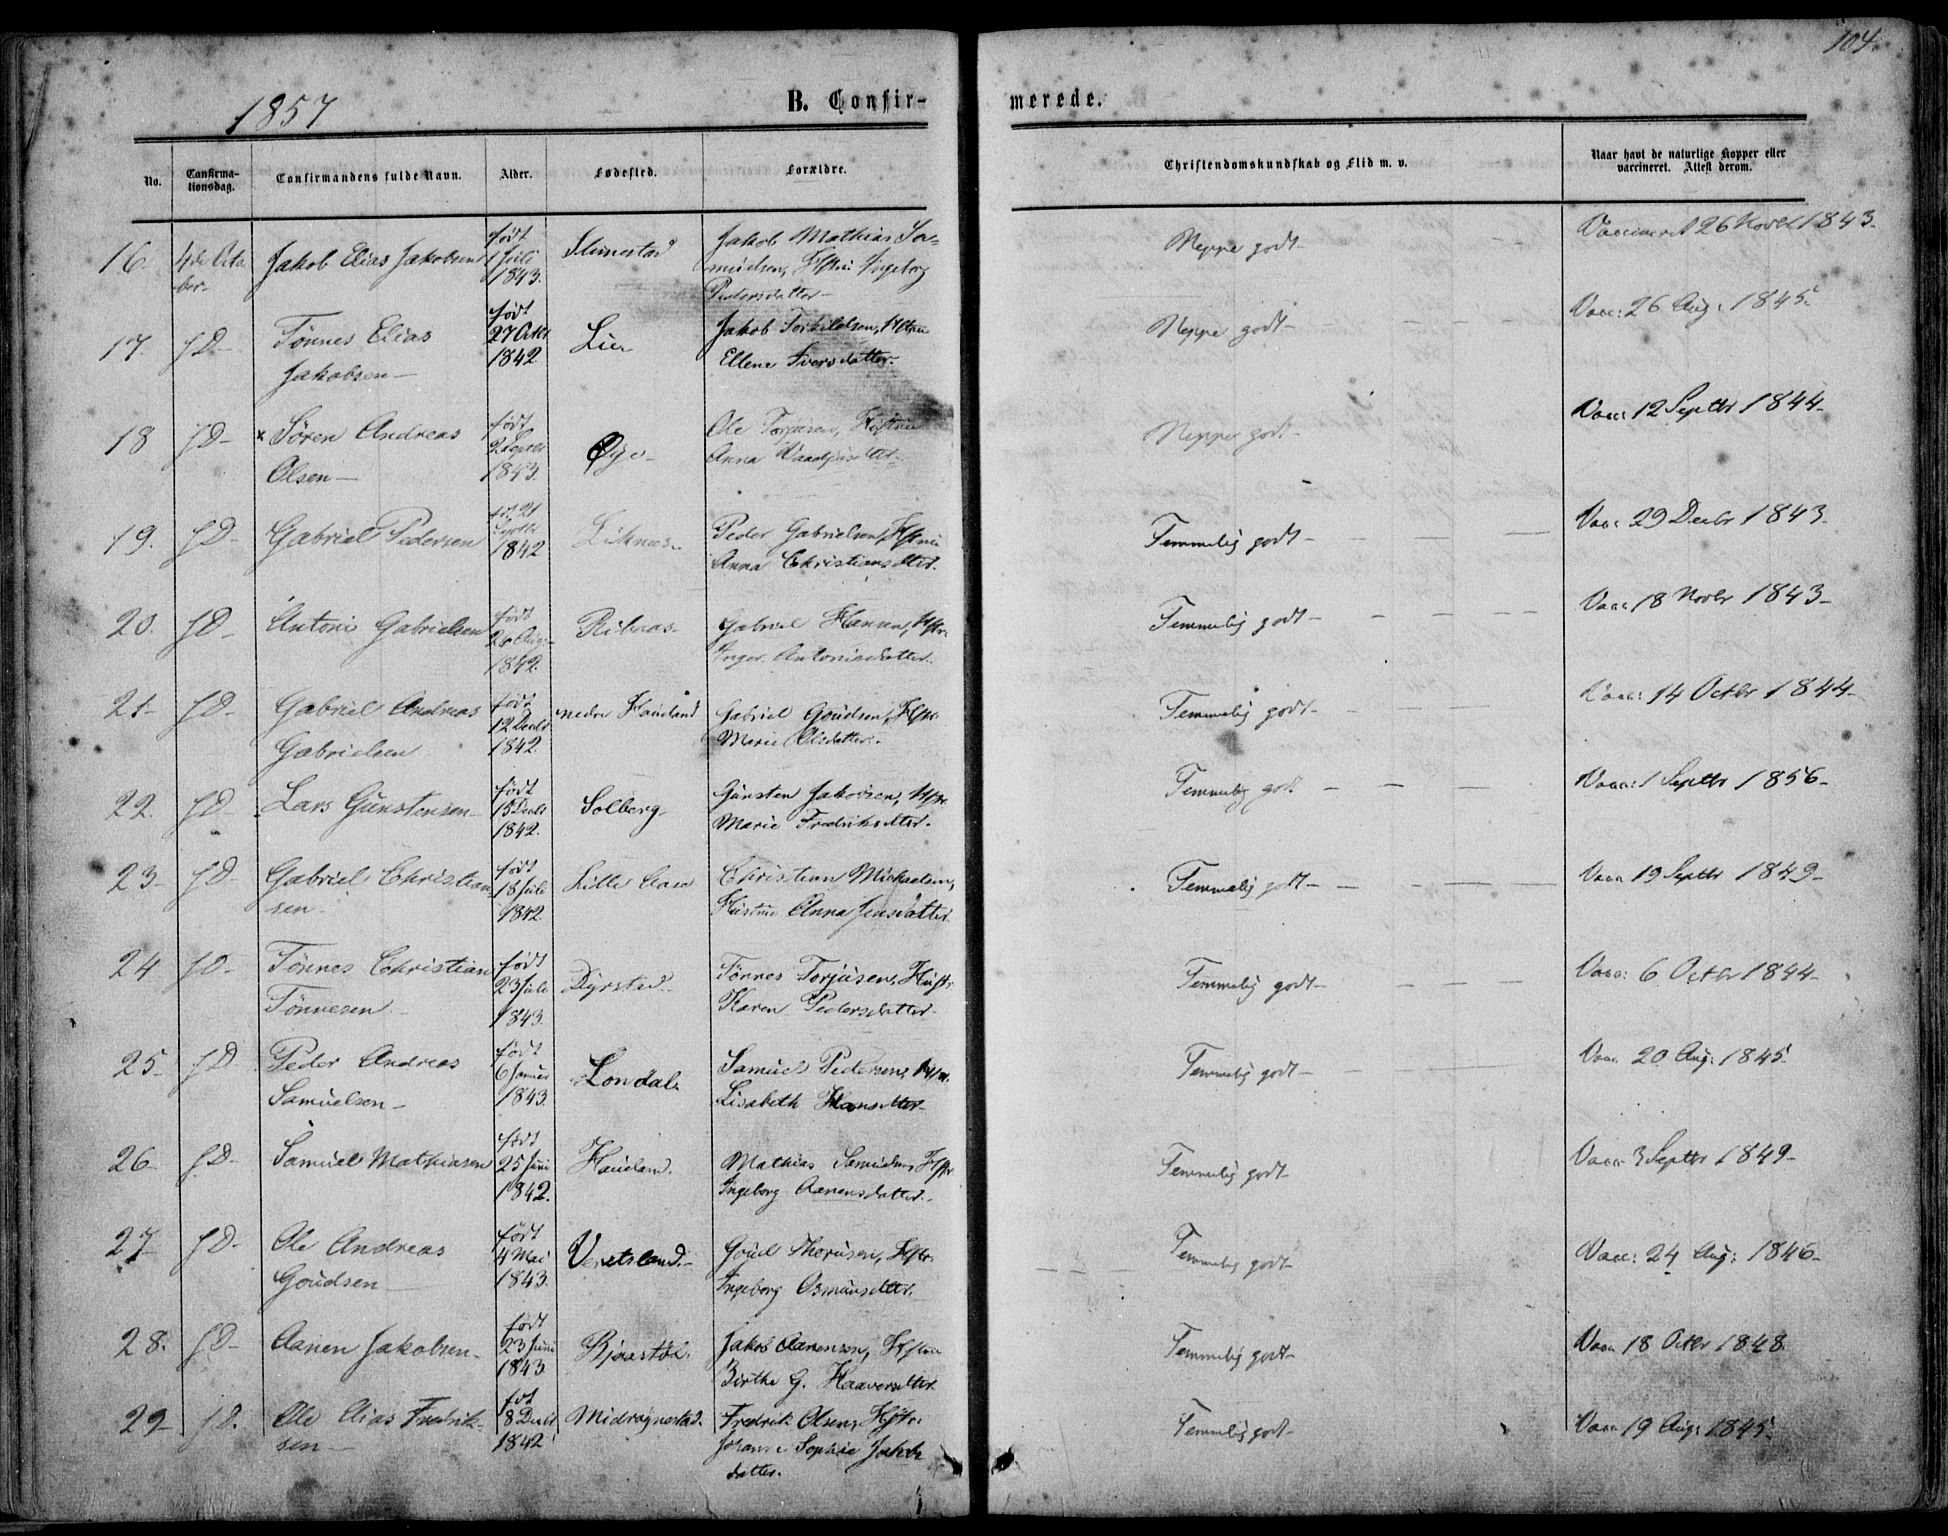 104.
1857
B. Confirmerede.
No.
Confirmationsdag.
Confirmandens fulde Navn.
Alder.
Fødested.
Forældre.
Christendomskundskab og Flid m. v.
Naar havt de naturlige Kopper eller
vaccineret. Attest derom.
16. 4de Octo- Jakob Elias Jakobsen født Jakob Mathias
ber. 1 Juli 1843. Ingeborg
Pedersdatter Neppe godt Vaccineret 26 Novbr 1843
17. f D Tønnes Elias født
Jakobsen 27 Octbr 1842 Lien Jakob Torkildsen, Hstru
Ellene Iversdatter. Neppe godt Vacc: 26 Aug: 1845
18 f D × Søren Andreas født
Olsen 2 Septbr 1843. Øye Ole Torjusen, Hustru
Anna Neppe godt Vacc: 12 Septbr 1844
19. f D Gabriel Pedersen født 21
Septbr 1842 Liknæs Peder Gabrielsen, Hstru
Anna Christiansdtter. Temmelig godt Vacc: 29 Decbr 1843
20. f D Antoni Gabrielsen født
Aug 1842. Gabriel Hansen, Hstr.
Inger Antonisdatter. Temmelig godt Vacc 18 Novbr 1843
21 f D Gabriel Andreas født
Gabrielsen 12 Decbr 1842. nedre Haugland Gabriel Goudsen, Hstr.
Marie Olsdatter. Temmelig godt Vacc: 14 Octbr 1844
22. f D Lars Gunstensen født
15 Decbr 1842. Solberg Gunsten Jakobsen, Hstr.
Marie Fredriksdtter. Temmelig godt Vacc: 1 Septbr 1856
23 f D Gabriel Christian født
sen 18 Juli 1842 Lille Aasa Christian Mickaelsen,
Hustru Anna Jensdatter Temmelig godt Vacc 19 Septbr 1849
24 f D Tønnes Christian født
Tønnesen 23 Juli 1843. Dyrstad Tønnes Torjusen, Hustr
Karen Pedersdatter Temmelig godt Vacc: 6 Octbr 1844
25 f D Peder Andreas født
Samuelsen 6 Januar 1843. Londal Samuel Pedersen, Hstr.
Lisabeth Hansdtter Temmelig godt Vacc. 20 Aug: 1845
26 f D Samuel Mathiasen født
25 Juni 1842. Hauland. Mathias Samuelsen Hstr
Ingeborg Aanensdatter. Temmelig godt Vacc: 3 Septbr 1849
27 f D Ole Andreas født
Goudsen 4 Mai 1843. Goud Thorusen, Hstr.
Ingeborg Osmunsdtter. Temmelig godt Vacc: 24 Aug: 1846
28. f D Aanen Jakobsen født
23 Juni 1843 Jakob Aanensen, Hstru
Birthe G. Haaversdtter Temmelig godt Vacc 18 Octbr 1848.
29 f D. Ole Elias Fredrik- født
sen 8 Decbr 1842 Midragnestad. Fredrik Olsen, Hstr.
Johanne Sophie Jakobs
datter. Temmelig godt Vacc 19 Aug: 1845